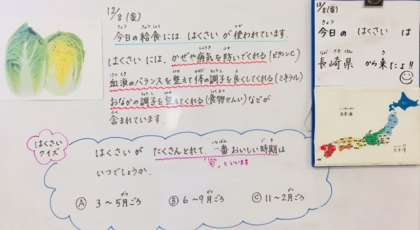 12/8(金)
今日の給食には はくさい が 使われています。
はくさい には、かぜや病気を防いでくれる(ビタミンC)
血液のバランスを整えて体の調子を良くしてくれる(ミネラル)
おなかの調子を整えてくれる(食物せんい)などが
含まれています。
はくさい
クイズ
はくさい が たくさんとれて、一番おいしい時期は
"旬"といいます
いつでしょうか。
Ⓐ 3~5月ごろ Ⓑ 6~9月ごろ Ⓒ 11~2月ごろ
12/8(金)
今日 の はくさい は
長崎県 から 来たよ